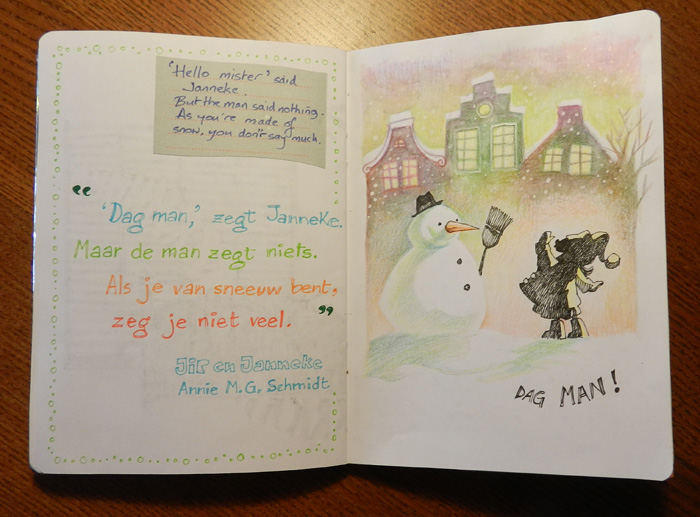 'Hello mister' said
Janneke.
But the man said nothing.
As you're made of
snow, you don't say much.
"
'Dag man,' zegt Janneke.
Maar de man zegt niets.
Als je van sneeuw bent,
zeg je niet veel. "
Jip en Janneke
Annie M.G. Schmidt
DAG MAN!